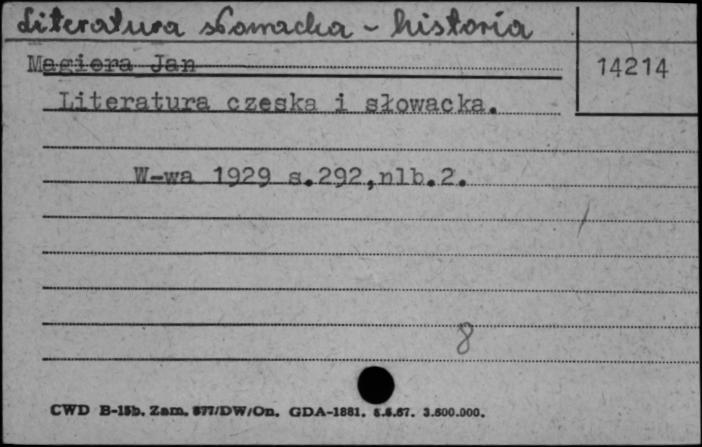 Literatura słowacka - historia
Magiera Jan
14214
Literatura czeska i słowacka.
W-wa 1929 s.292,nlb.2.
8
CWD B-15b. Zam. 877/DW/On. GDA-1881. 6.6.67. 3.600.000.